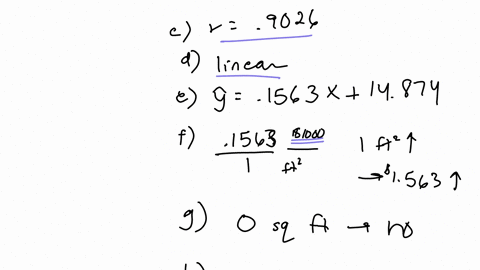 c) r = .9026
d) linear
e) ŷ = .1563 x + 14.874
f) .1563/1 $1000/ft² 1 ft² ↑
→ $1.563 ↑
g) 0 sq ft → no